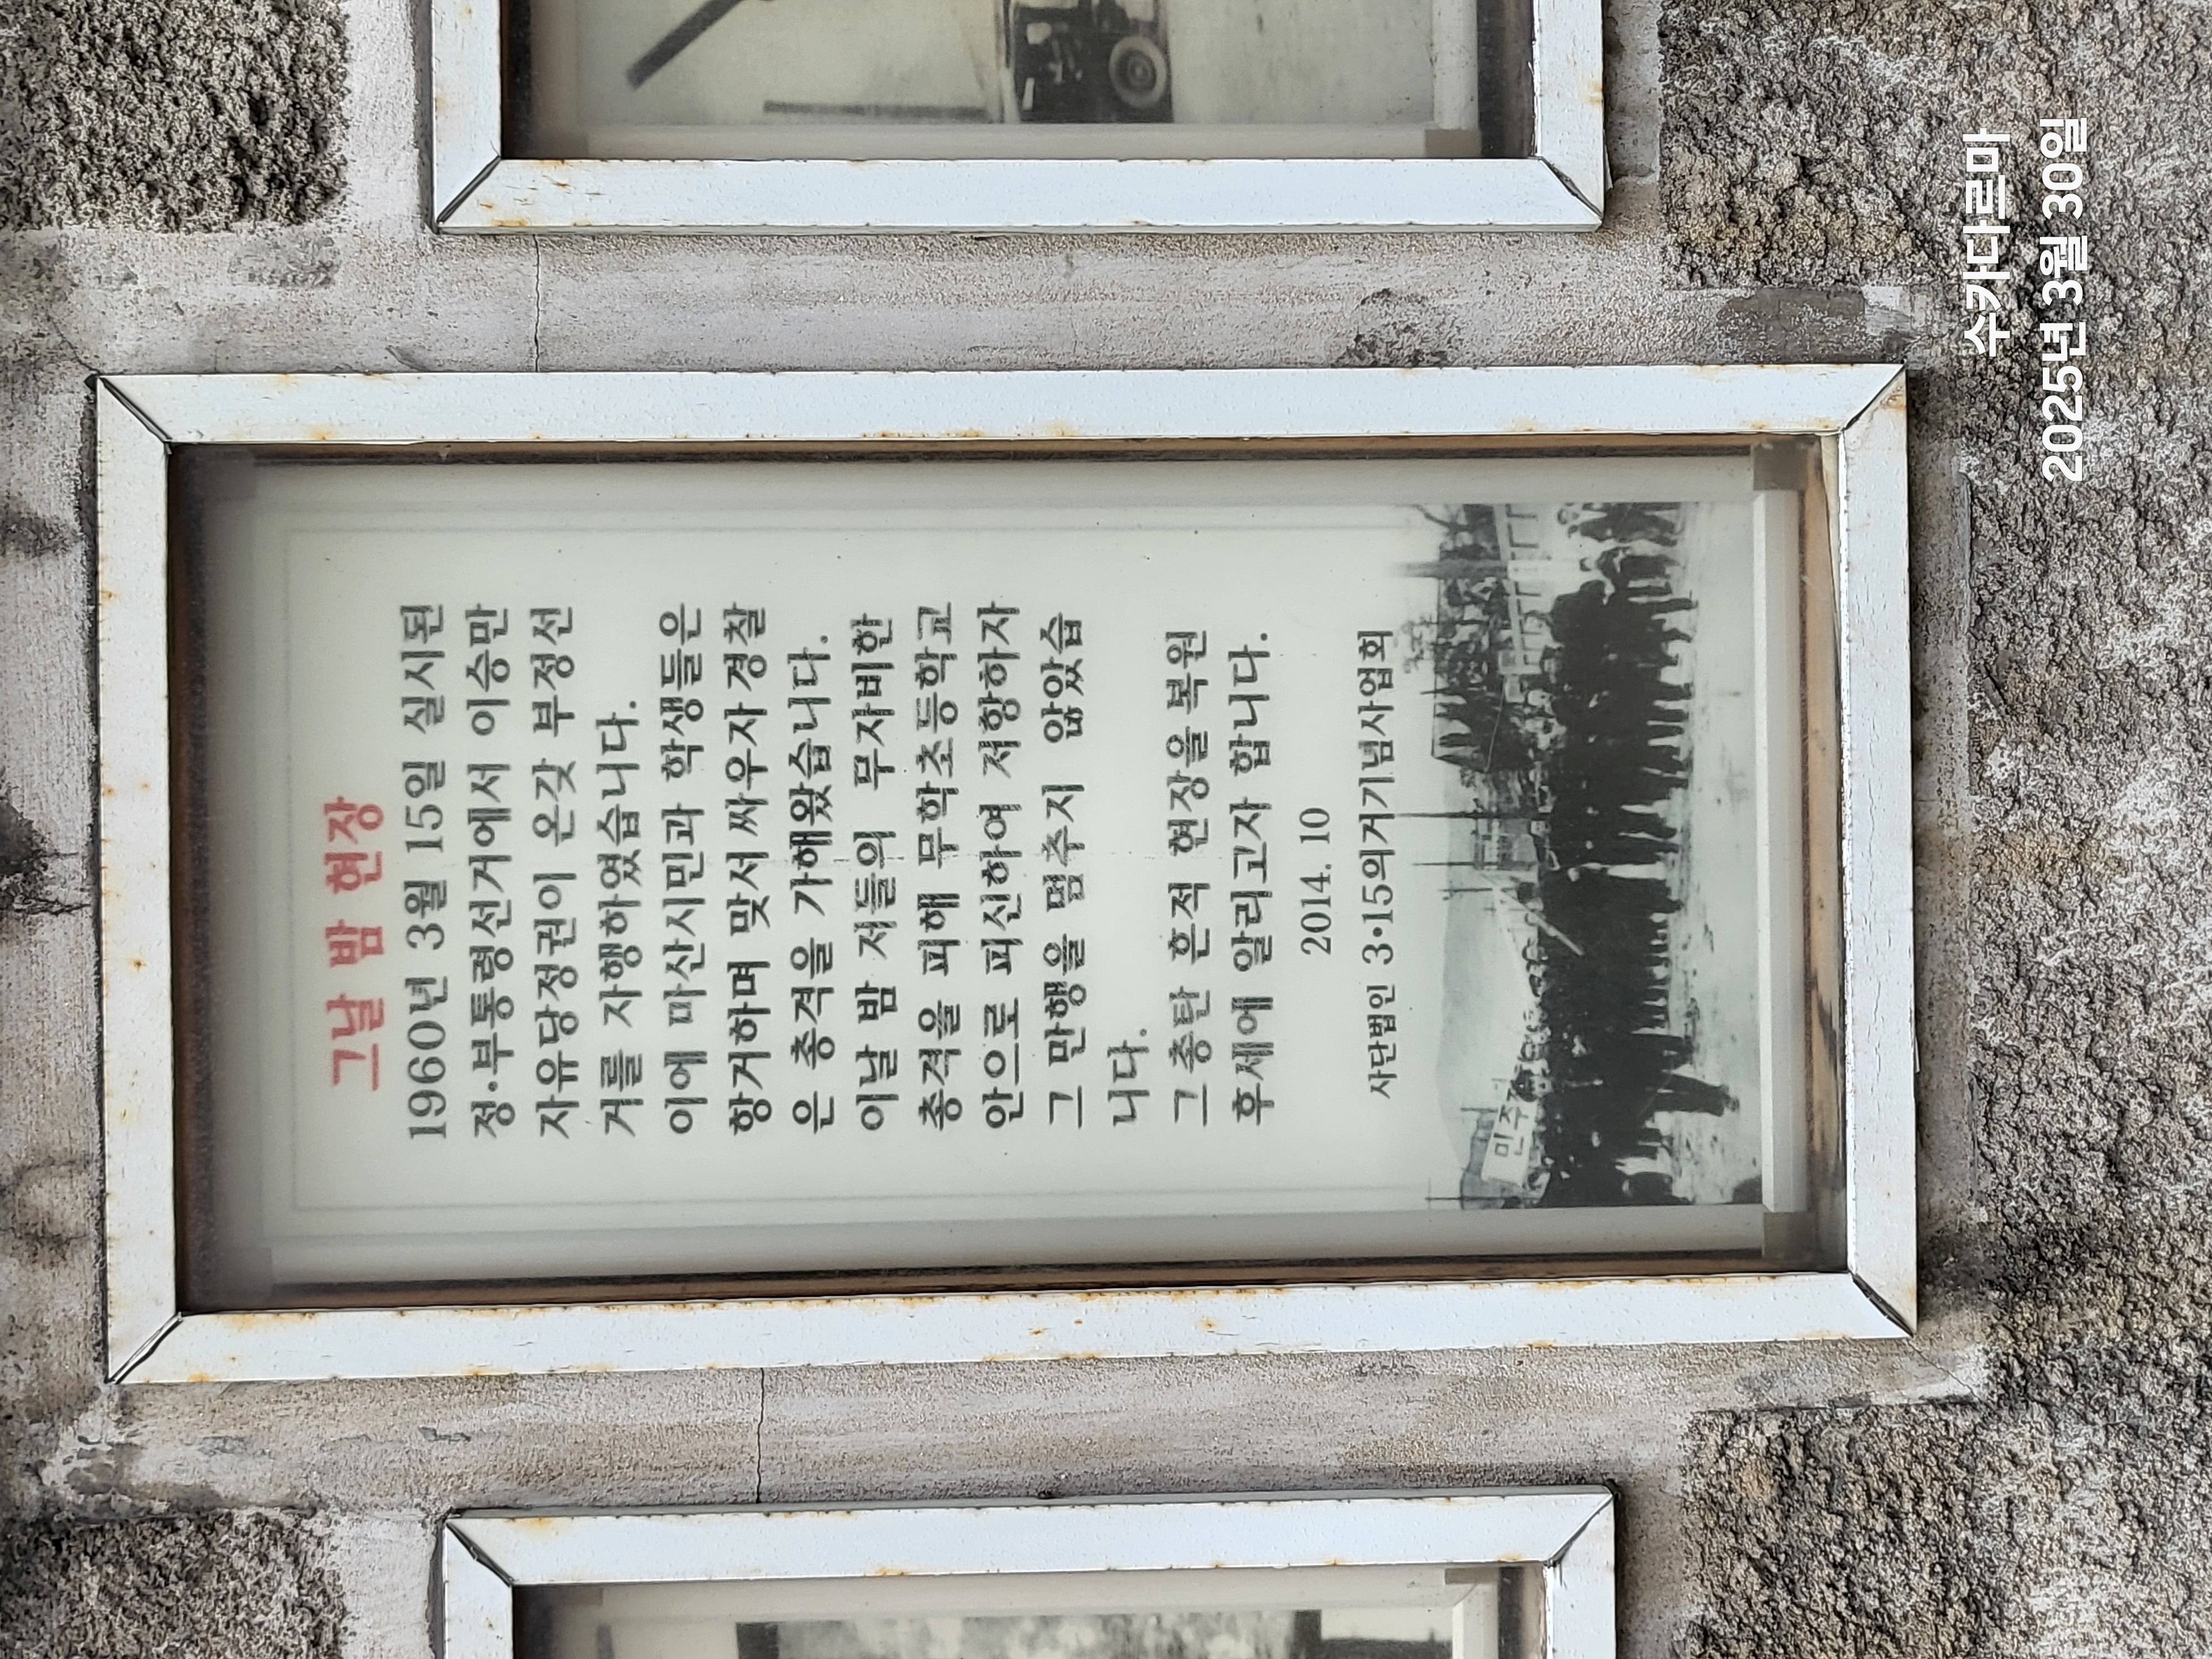 그날 밤 현장
1960년 3월 15일 실시된
정·부통령선거에서 이승만
자유당정권이 온갖 부정선
거를 자행하였습니다.
이에 마산시민과 학생들은
항거하며 맞서 싸우자 경찰
은 총격을 가해왔습니다.
이날 밤 저들의 무자비한
총격을 피해 무학초등학교
안으로 피신하여 저항하자
그 만행을 멈추지 않았습
니다.
그 총탄 흔적 현장을 복원
후세에 알리고자 합니다.
2014. 10
사단법인 3·15의거기념사업회
민주
수카다르마
2025년 3월 30일